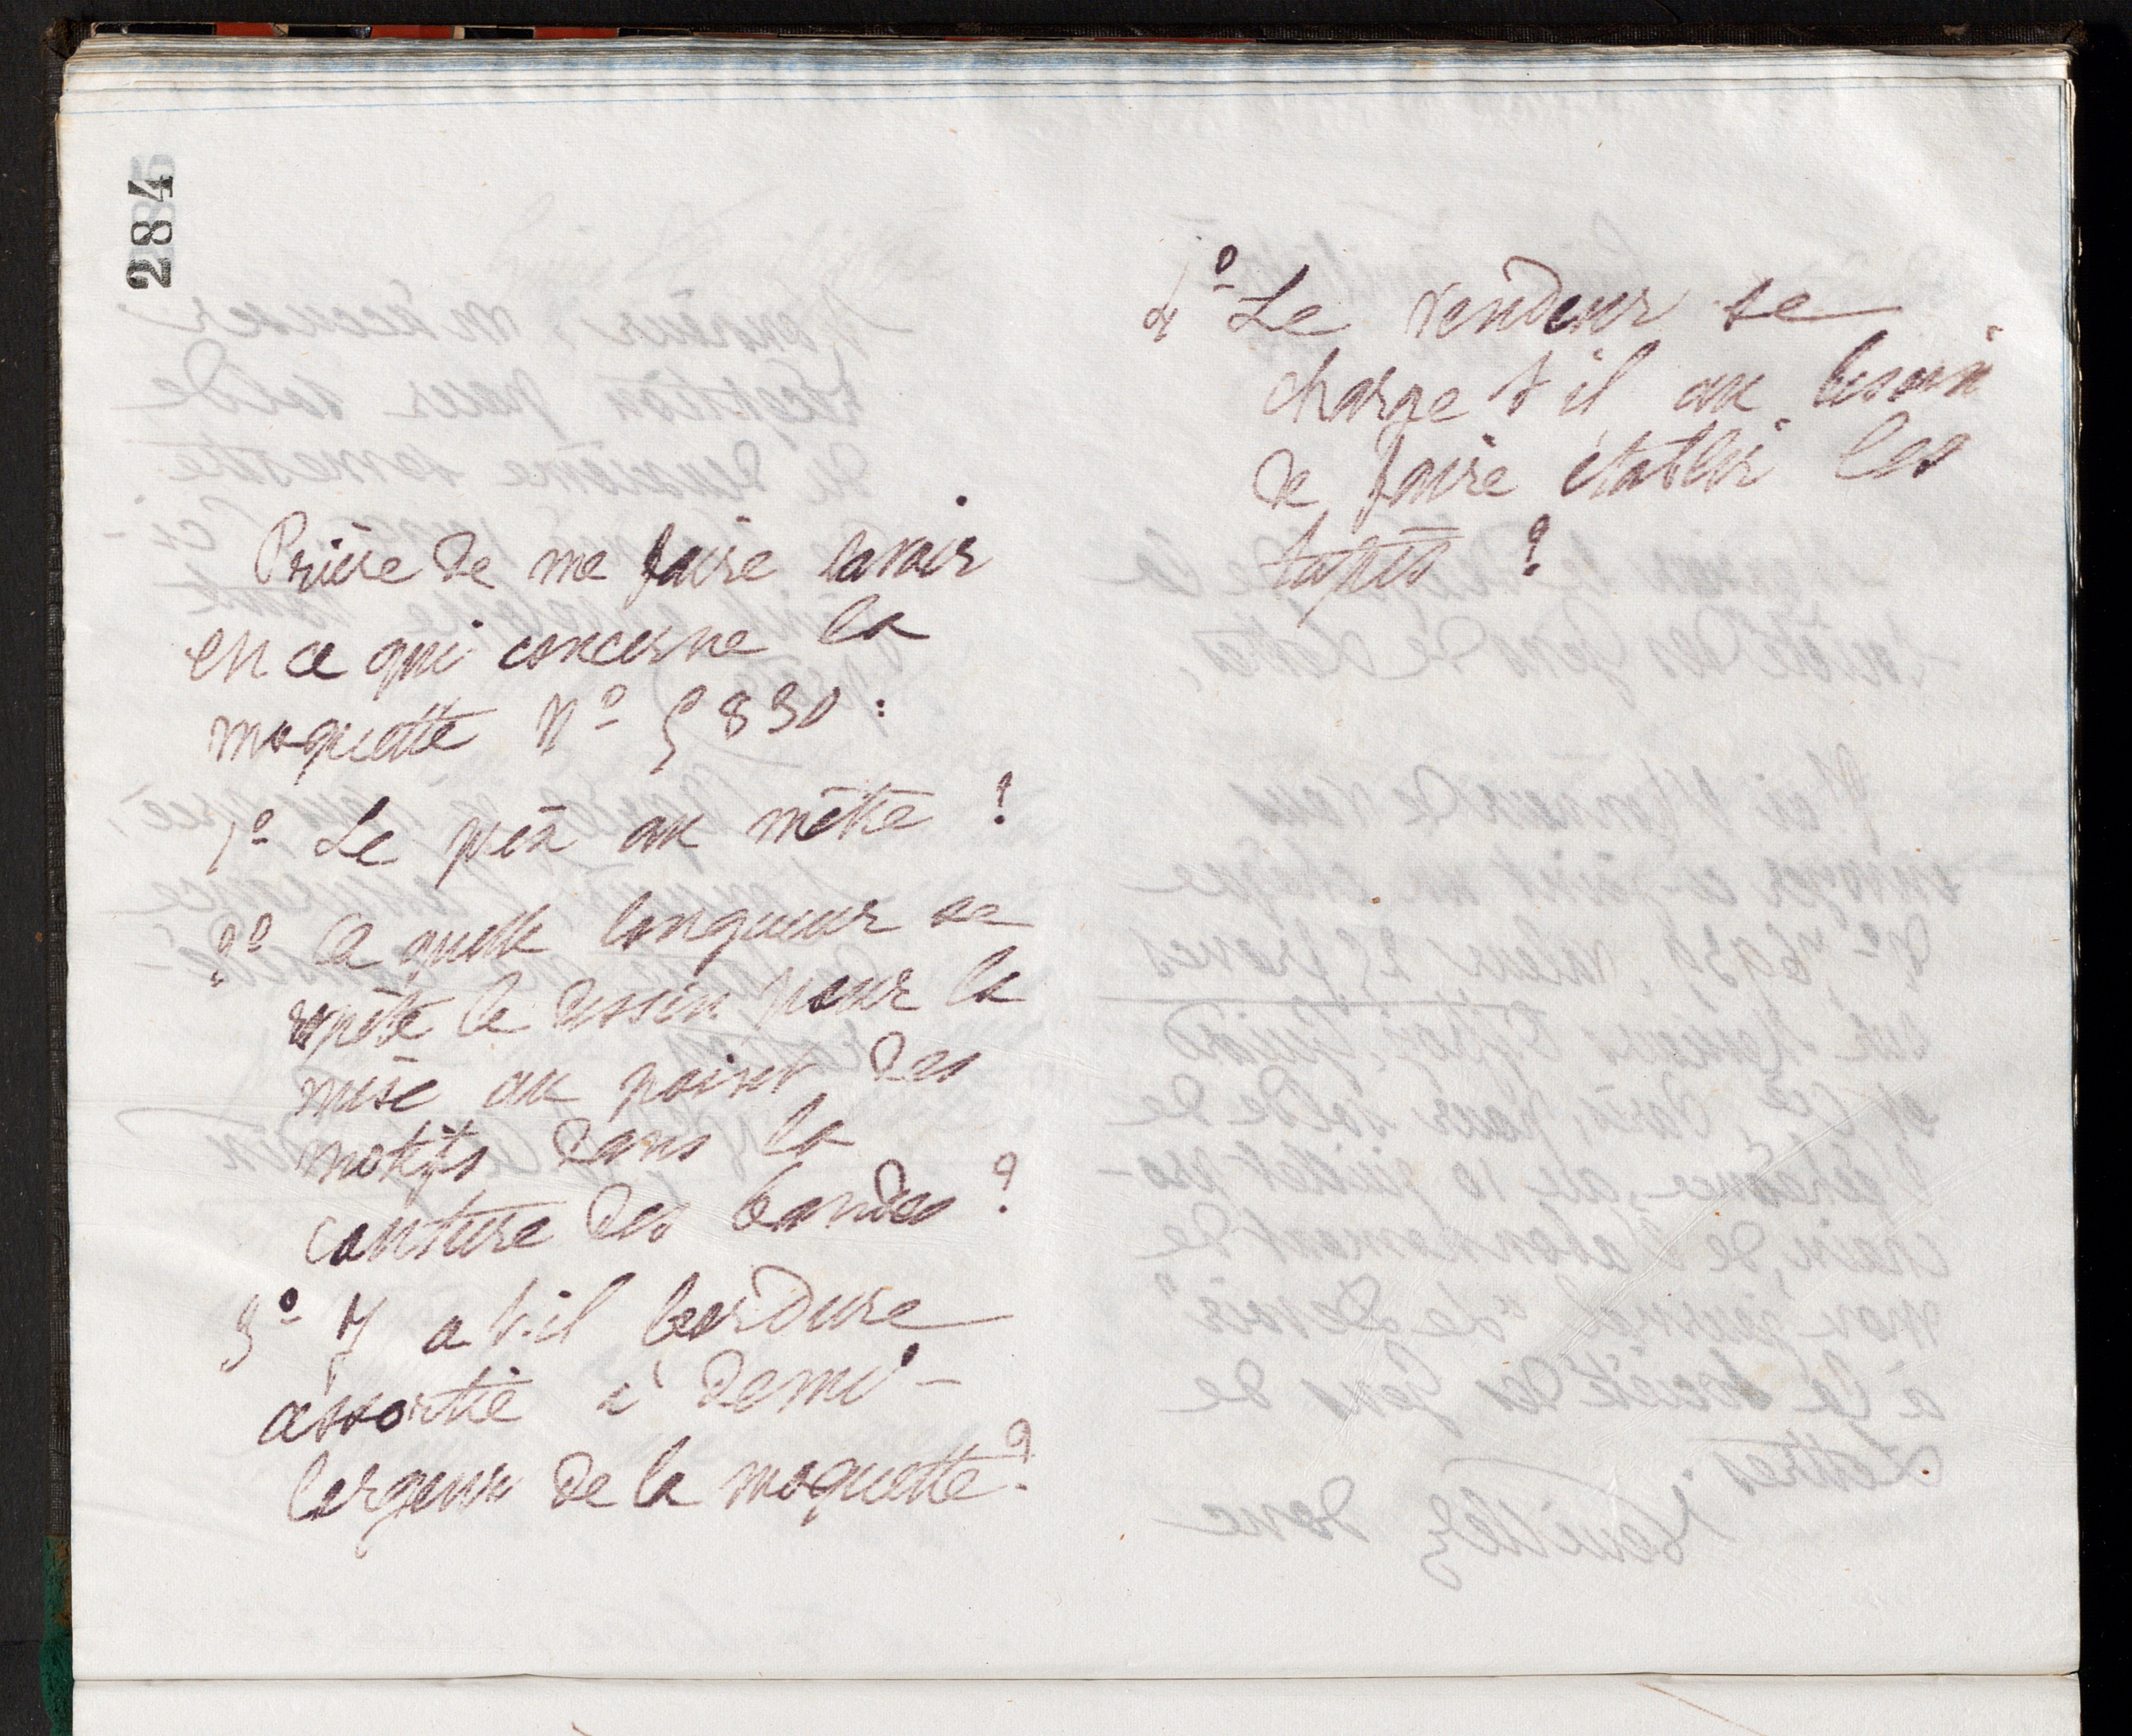 284
Prière de me faire savoir
en ce qui concerne la
moquette N° 5830 :
1° Le prix au mètre ?
2° A quelle longueur se
répète le dessin pour la
mise au point des
motifs dans la
couture des bandes ?
3° Y a t-il bordure
assortie à demi-
largeur de la moquette ?
4° Le vendeur se
charge t il au besoin
de faire établir les
tapis ?